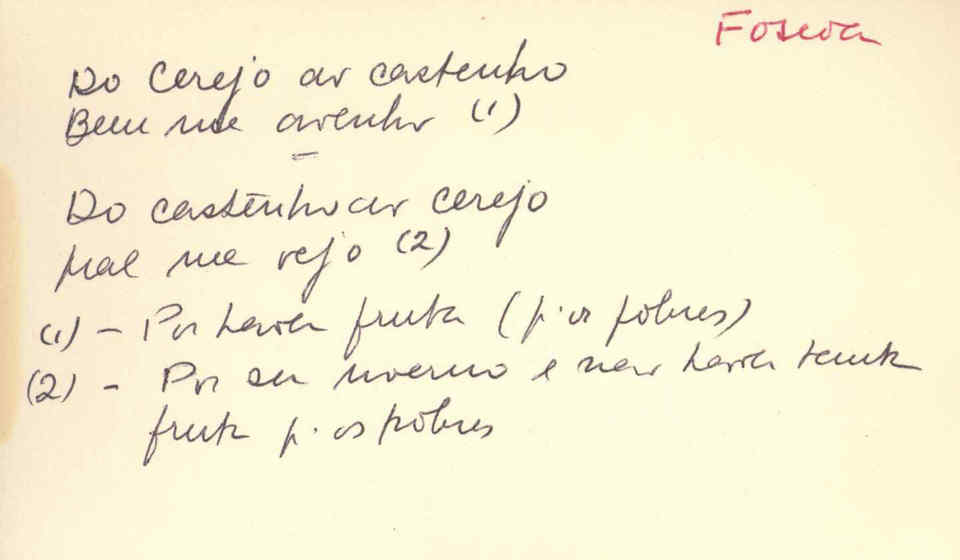 Foscoa
Do Cerejo ao castenho
Bem me avenho (1)
Do castenho ao cerejo
Mal me vejo (2)
(1) - Por haver fruta (p. os pobres)
(2) - Por ser inverno e não haver tanta
fruta p. os pobres